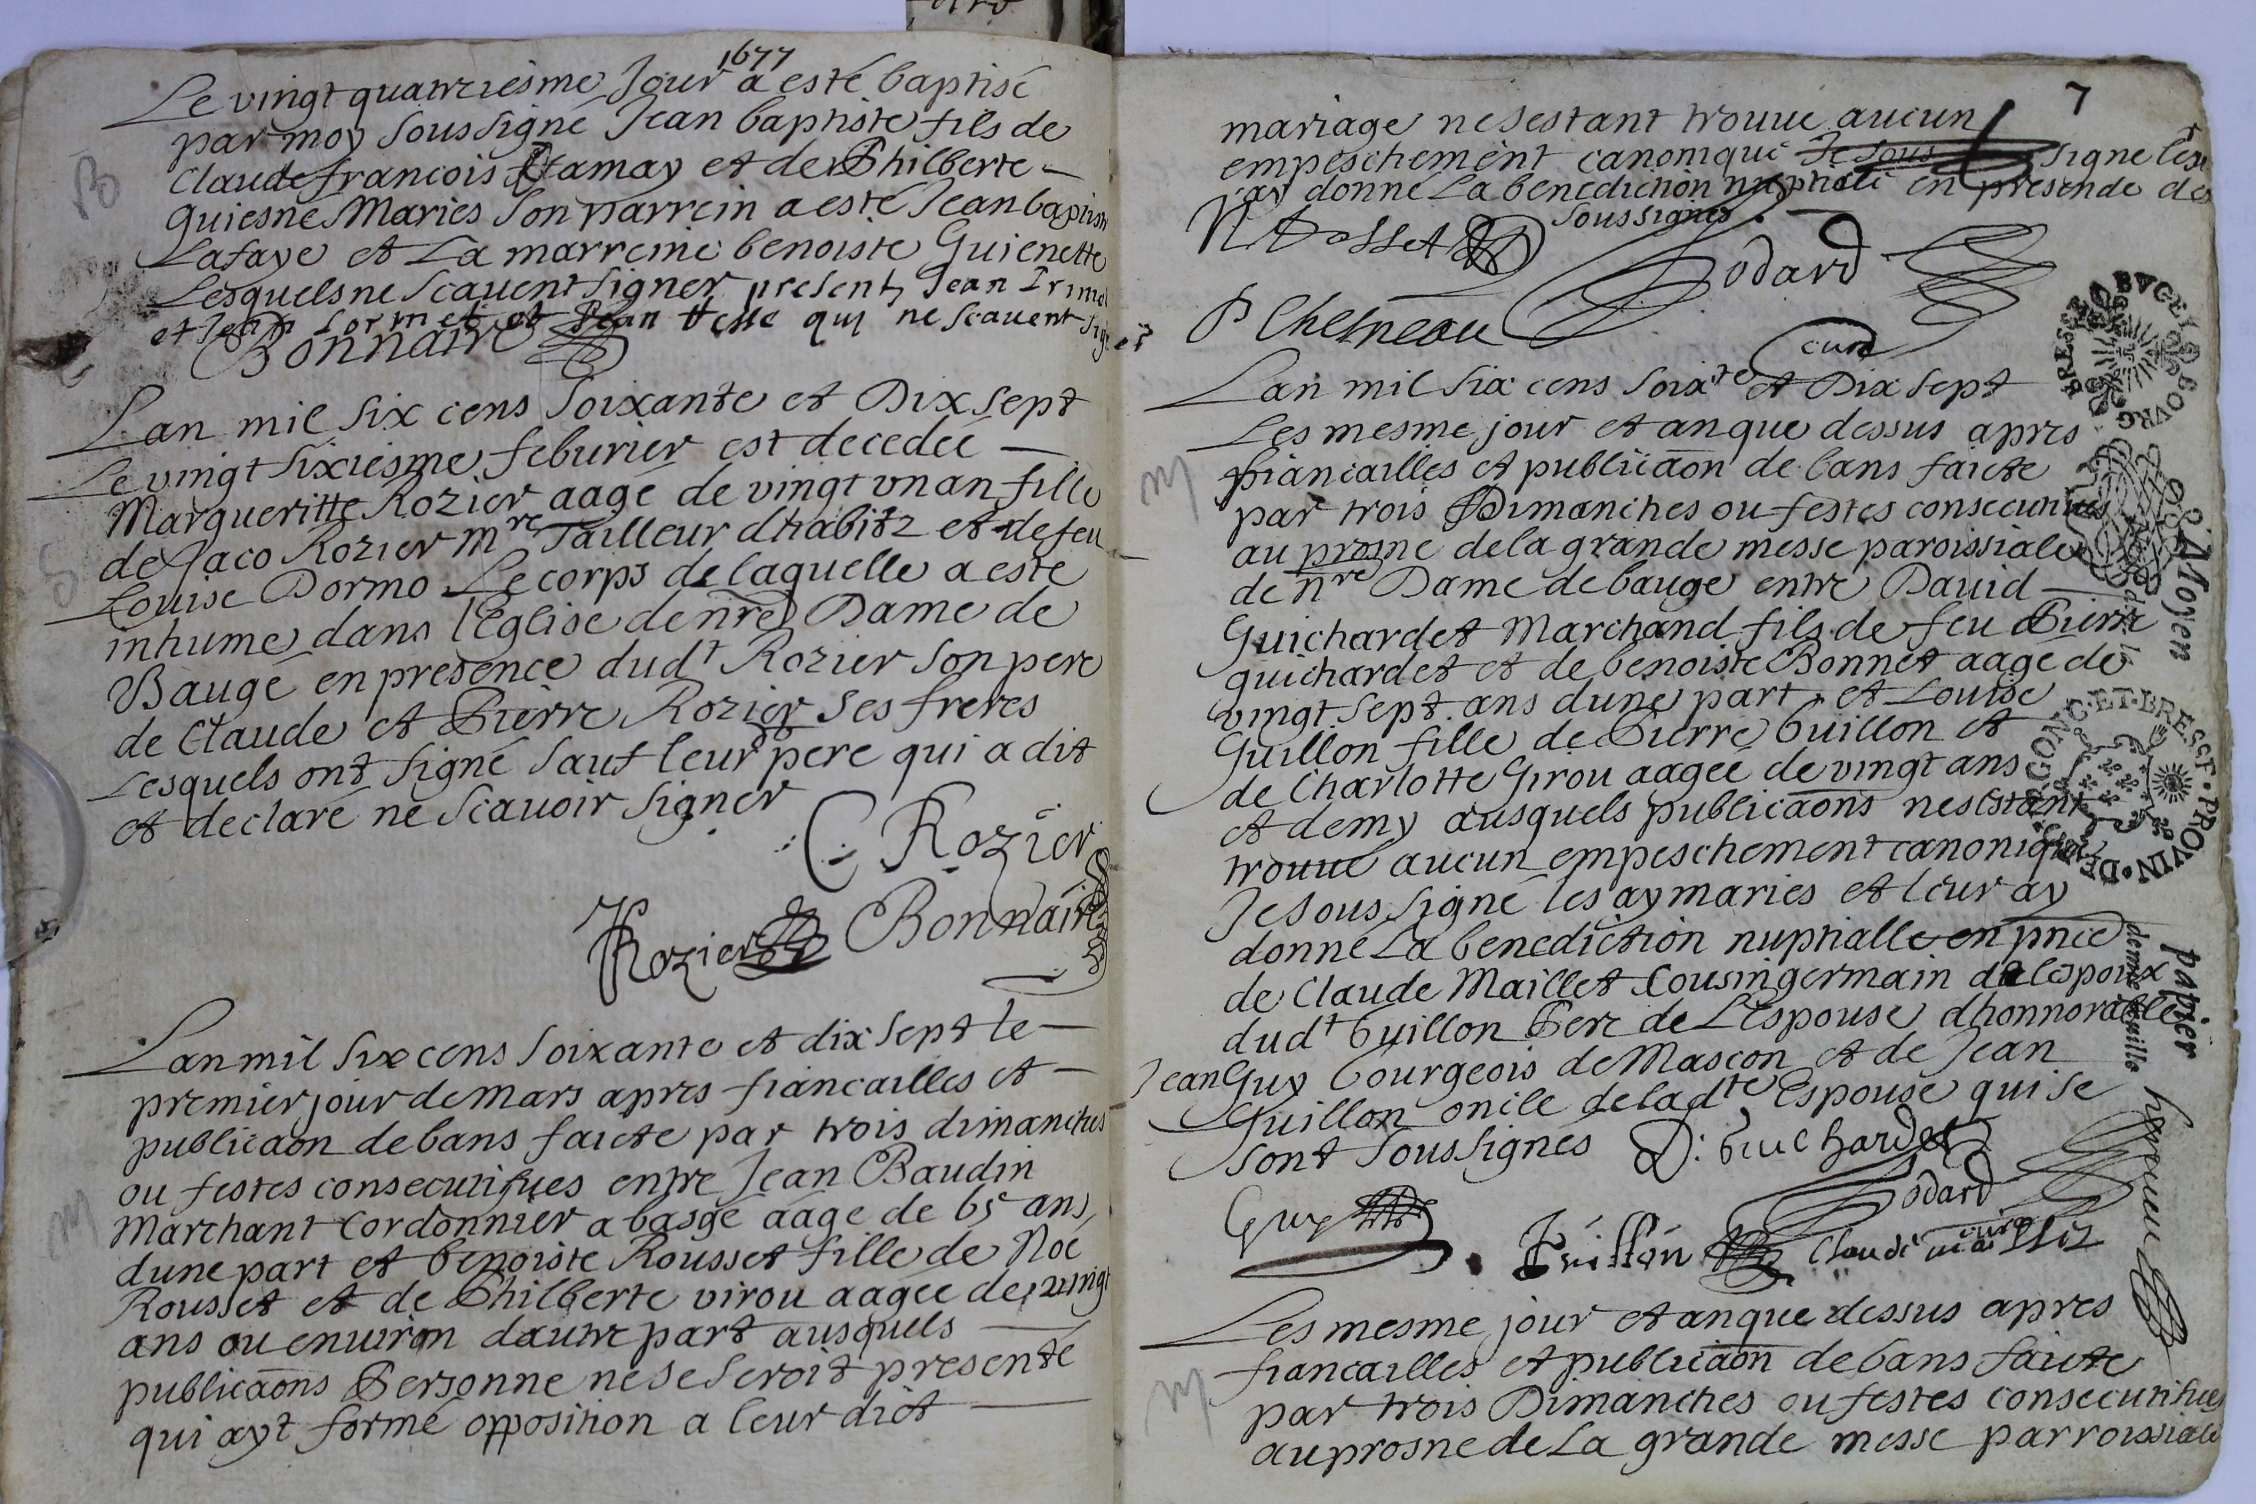 1677
Le vingt quatriesme Jour a esté baptisé
par moy soussigné Jean baptiste fils de
Claude francois et de Philberte
guiesne Maries son parrein a esté Jean baptiste
Lafaye et La marreine benoiste Guienette
Lesquels ne scavent signer present Jean
et Jean Lormet et Jean qui ne scavent signer
Bonnaire
Lan mil six cens soixante et Dix sept
Le vingt sixiesme feburier est decedée
Margueritte Rozier aagé de vingt un an fille
de Jaco Rozier Mre Tailleur dhabitz et de feu
Louise Dormo Le corps de laquelle a esté
inhumé dans l'Eglise de nre Dame de
Baugé en presence dudt Rozier son pere
de Claude et Pierre Rozier ses freres
Lesquels ont signé sauf leur pere qui a dit
et declaré ne scavoir signer
C Rozier
Rozier Bonnaire
Lan mil six cens soixante et dix sept le
premier jour de Mars apres fiancailles et
publicaon de bans faicte par trois dimanches
ou festes consecutifues entre Jean Baudin
Marchant Cordonnier a basgé aagé de 65 ans
dune part et benoiste Rousset fille de Noé
Rousset et de Philberte virou aagée de vingt
ans ou enuiron dautre part ausquels
publicaons Personne ne se seroit presenté
qui ayt formé opposition a leur dict
7
mariage ne sestant trouué aucun
empeschement canonique Je sous signé les
ay donné La benediction nuptiale en presence des
soussignes
N Rosset Godard
P Chesneau
curé
Lan mil six cens soixte et Dix sept
Les mesme jour et an que dessus apres
fiancailles et publicaon de bans faicte
par trois Dimanches ou festes consecutiues
au prosne de la grande messe paroissiale
de nre Dame de baugé entre Dauid
Guichardet Marchand fils de feu Pierre
guichardet et de benoiste Bonnet aagé de
vingt sept ans dune part et Louise
Guillon fille de Pierre Guillon et
de Charlotte Girou aagée de vingt ans
et demy ausquels publicaons ne sestant
trouué aucun empeschement canonique
Je sous signé les ay mariés et leur ay
donné La benediction nuptialle en pnce
de Claude Maillet Cousin germain de lespoux
dudt Guillon Pere de L'Espouse dhonnorable
Jean Guy bourgeois de Mascon et de Jean
Guillon oncle de ladte Espouse qui se
sont soussignés D. Guichardet
Godard
curé
Guy Guillon Claude maillet
Les mesme jour et an que dessus apres
fiancailles et publicaon de bans faicte
par trois Dimanches ou festes consecutifues
au prosne de La grande messe parroissiale
BRESSE BVGEY BOVRG
Moyen papier
demie feuille
BOVRGONG·ET·BRESSE·PROVIN·DE